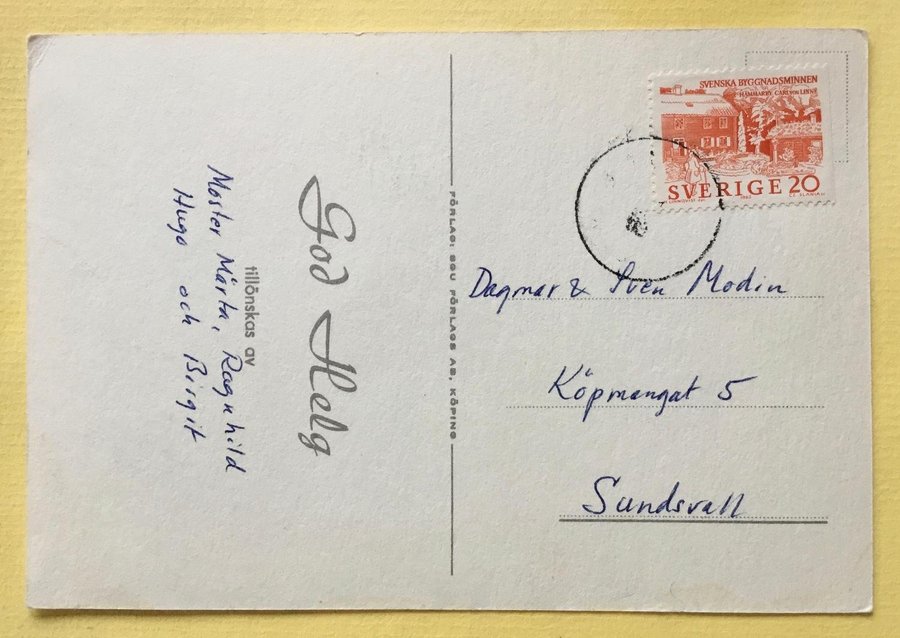 God Helg
tillönskas av
Moster Märta, Ragnhild
Hugo och Birgit
FÖRLAG: SGU FÖRLAGS AB, KÖPING
SVENSKA BYGGNADSMINNEN
HAMMARBY CARL VON LINNÉ
SVERIGE 20
1963
Dagmar & Sven Modin
Köpmangat 5
Sundsvall